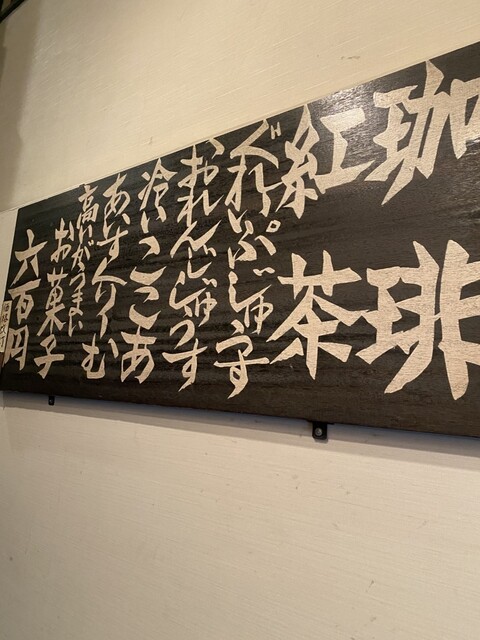 珈琲
紅茶
ぐれいぷじゅうす
おれんじじゅうす
冷いここあ
あいすくりーむ
高いがうまい
お菓子
六百円